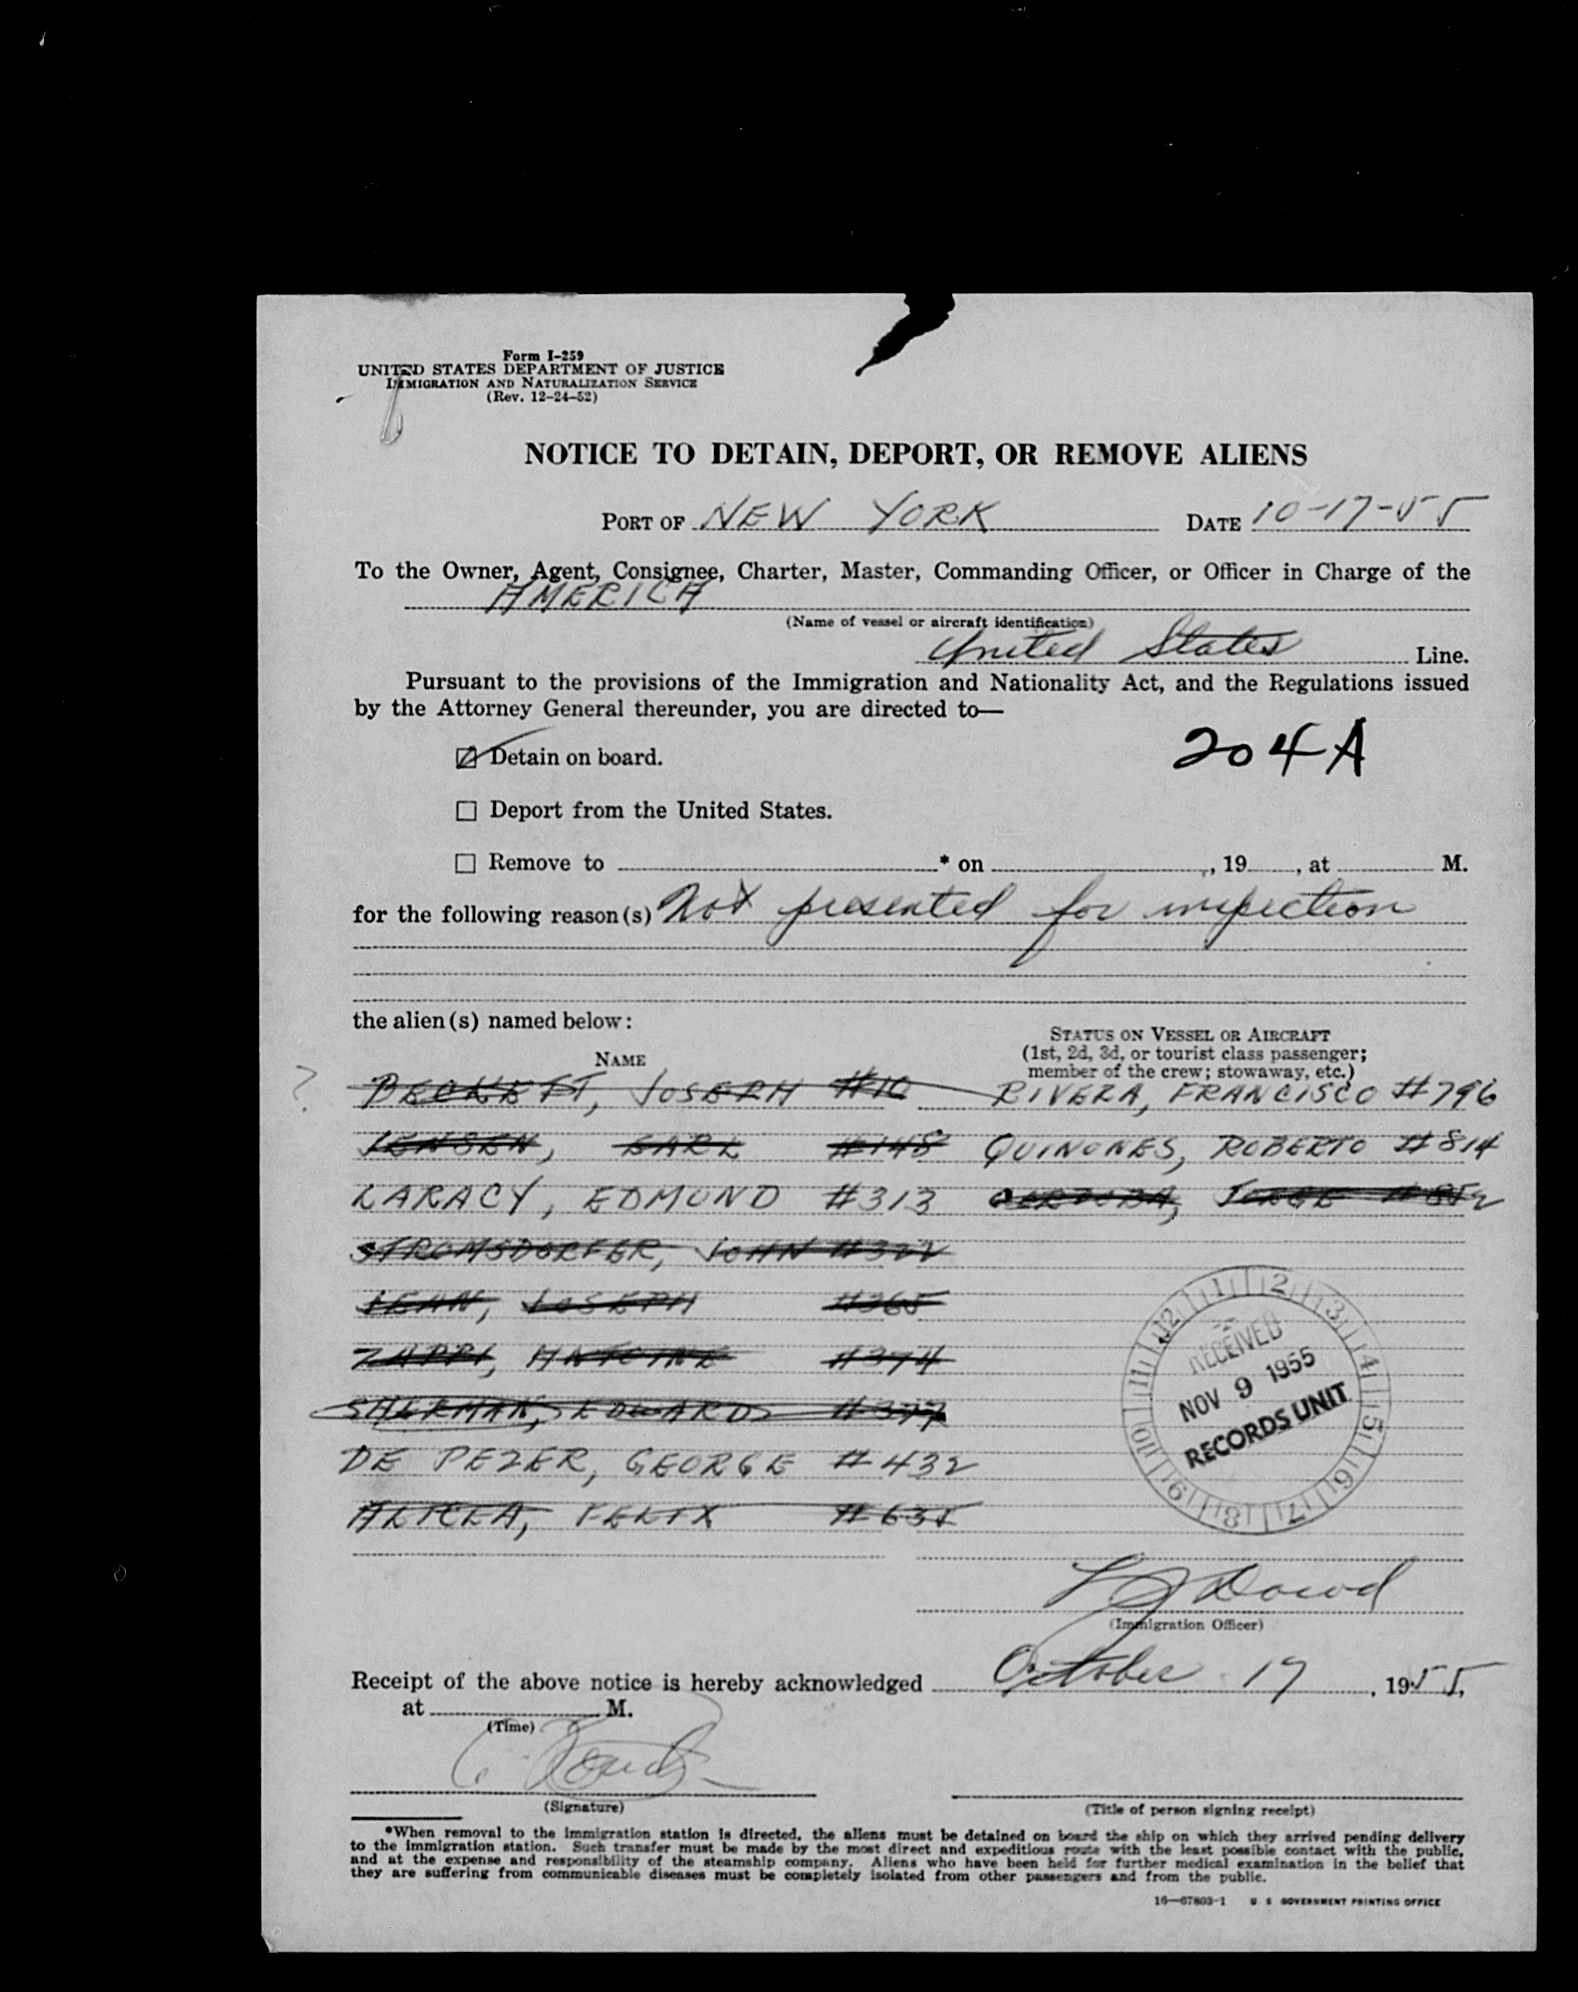 Form I-259
UNITED STATES DEPARTMENT OF JUSTICE
IMMIGRATION AND NATURALIZATION SERVICE
(Rev. 12-24-52)
NOTICE TO DETAIN, DEPORT, OR REMOVE ALIENS
PORT OF NEW YORK DATE 10-17-55
To the Owner, Agent, Consignee, Charter, Master, Commanding Officer, or Officer in Charge of the
AMERICA
(Name of vessel or aircraft identification)
United States Line.
Pursuant to the provisions of the Immigration and Nationality Act, and the Regulations issued
by the Attorney General thereunder, you are directed to—
Detain on board.
204A
Deport from the United States.
Remove to * on , 19 , at M.
for the following reason(s) Not presented for inspection
the alien(s) named below:
NAME
STATUS ON VESSEL OR AIRCRAFT
(1st, 2d, 3d, or tourist class passenger;
member of the crew; stowaway, etc.)
? BECKETT, JOSEPH #10 RIVERA, FRANCISCO #796
JENSEN, EARL #148 QUINONES, ROBERTO #814
LARACY, EDMUND #313 JORGE #852
STROMSDORFER, JOHN #322
JOSEPH #365
ZAPPI, ANTOINE #374
SHERMAN, EDWARD #377
DE PEZER, GEORGE #432
ALICEA, FELIX #635
12 1 2 3 4 5 6 7 8 9 10 11
RECEIVED
NOV 9 1955
RECORDS UNIT
Dowd
(Immigration Officer)
Receipt of the above notice is hereby acknowledged October 17, 1955,
at M.
(Time)
(Signature)
(Title of person signing receipt)
*When removal to the immigration station is directed, the aliens must be detained on board the ship on which they arrived pending delivery
to the immigration station. Such transfer must be made by the most direct and expeditious route with the least possible contact with the public,
and at the expense and responsibility of the steamship company. Aliens who have been held for further medical examination in the belief that
they are suffering from communicable diseases must be completely isolated from other passengers and from the public.
16—67803-1 U S GOVERNMENT PRINTING OFFICE